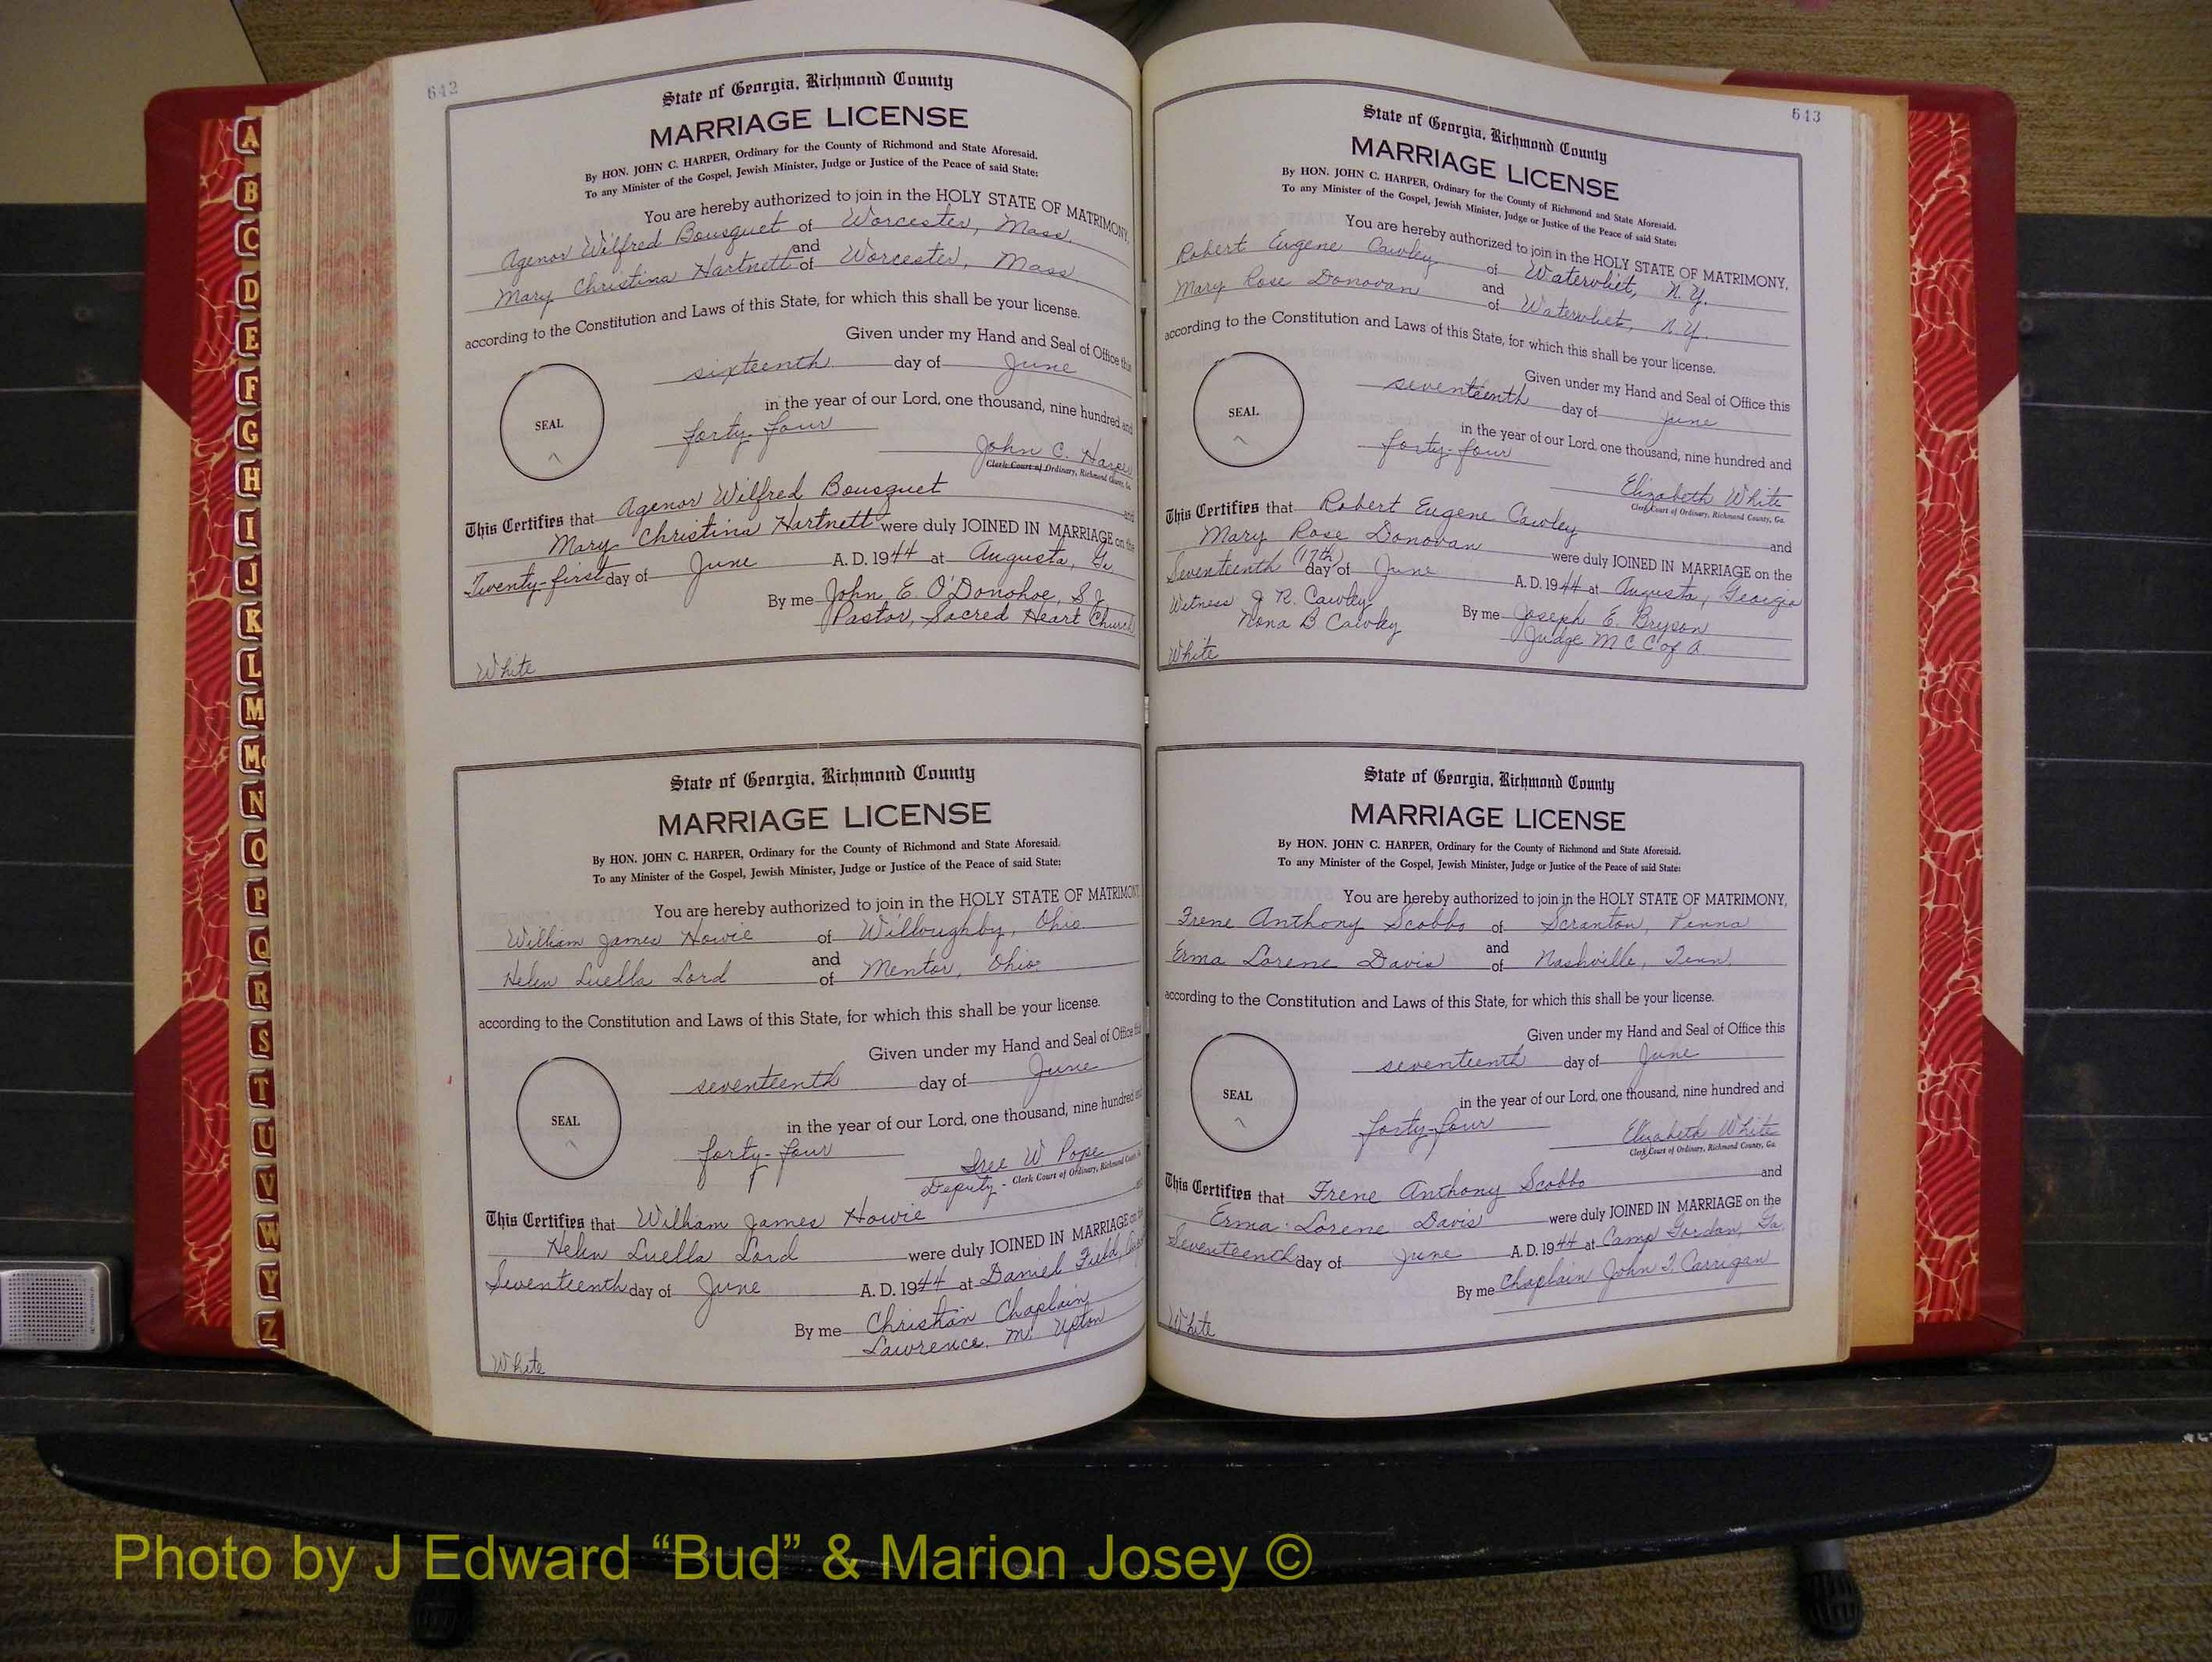 642
State of Georgia, Richmond County
MARRIAGE LICENSE
By HON. JOHN C. HARPER, Ordinary for the County of Richmond and State Aforesaid.
To any Minister of the Gospel, Jewish Minister, Judge or Justice of the Peace of said State:
You are hereby authorized to join in the HOLY STATE OF MATRIMONY,
Agenor Wilfred Bousquet of Worcester, Mass.
and
Mary Christina Hartnett of Worcester, Mass.
according to the Constitution and Laws of this State, for which this shall be your license.
Given under my Hand and Seal of Office this
sixteenth day of June
in the year of our Lord, one thousand, nine hundred and
SEAL
forty-four
John C. Harper
Clerk Court of Ordinary, Richmond County, Ga.
This Certifies that Agenor Wilfred Bousquet and
Mary Christina Hartnett were duly JOINED IN MARRIAGE on the
Twenty-first day of June A. D. 1944 at Augusta, Ga.
By me John E. O'Donohoe, S.J.
Pastor, Sacred Heart Church
White
State of Georgia, Richmond County
MARRIAGE LICENSE
By HON. JOHN C. HARPER, Ordinary for the County of Richmond and State Aforesaid.
To any Minister of the Gospel, Jewish Minister, Judge or Justice of the Peace of said State:
You are hereby authorized to join in the HOLY STATE OF MATRIMONY,
William James Howie of Willoughby, Ohio
and
Helen Luella Lord of Mentor, Ohio
according to the Constitution and Laws of this State, for which this shall be your license.
Given under my Hand and Seal of Office this
seventeenth day of June
SEAL
in the year of our Lord, one thousand, nine hundred and
forty-four
W Pope
Deputy - Clerk Court of Ordinary, Richmond County
This Certifies that William James Howie and
Helen Luella Lord were duly JOINED IN MARRIAGE on
Seventeenth day of June A. D. 1944 at Daniel Field,
By me Christian Chaplain
Lawrence M. Upton
White
643
State of Georgia, Richmond County
MARRIAGE LICENSE
By HON. JOHN C. HARPER, Ordinary for the County of Richmond and State Aforesaid.
To any Minister of the Gospel, Jewish Minister, Judge or Justice of the Peace of said State:
You are hereby authorized to join in the HOLY STATE OF MATRIMONY,
Robert Eugene Cawley of Watervliet, N.Y.
and
Mary Rose Donovan of Watervliet, N.Y.
according to the Constitution and Laws of this State, for which this shall be your license.
Given under my Hand and Seal of Office this
seventeenth day of June
SEAL
in the year of our Lord, one thousand, nine hundred and
forty-four
Elizabeth White
Clerk Court of Ordinary, Richmond County, Ga.
This Certifies that Robert Eugene Cawley
Mary Rose Donovan and
were duly JOINED IN MARRIAGE on the
Seventeenth (17th) day of June A. D. 1944 at Augusta, Georgia
Witness J R. Cawley By me Joseph E. Bryson
Nona B Cawley Judge M C C of A
White
State of Georgia, Richmond County
MARRIAGE LICENSE
By HON. JOHN C. HARPER, Ordinary for the County of Richmond and State Aforesaid.
To any Minister of the Gospel, Jewish Minister, Judge or Justice of the Peace of said State:
You are hereby authorized to join in the HOLY STATE OF MATRIMONY,
Frene Anthony Scobbo of Scranton, Penna
and
Erma Lorene Davis of Nashville, Tenn.
according to the Constitution and Laws of this State, for which this shall be your license.
Given under my Hand and Seal of Office this
seventeenth day of June
SEAL
in the year of our Lord, one thousand, nine hundred and
forty-four
Elizabeth White
Clerk Court of Ordinary, Richmond County, Ga.
This Certifies that Frene Anthony Scobbo and
Erma Lorene Davis were duly JOINED IN MARRIAGE on the
Seventeenth day of June A. D. 1944 at Camp Gordan, Ga.
By me Chaplain John J. Carrigan
White
A
B
C
D
E
F
G
H
I
J
K
L
M
Mc
N
O
P
Q
R
S
T
U
V
W
Y
Z
Photo by J Edward “Bud” & Marion Josey ©